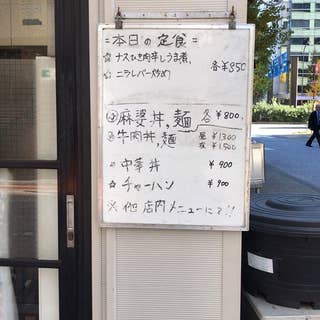 =本日の定食=
☆ ナスひき肉辛しうま煮、
☆ ニラレバー炒め 各¥850
麻婆丼,麺 各¥800,
牛肉丼,麺 昼¥1300
夜¥1,500
☆ 中華丼 ¥900
☆ チャーハン ¥900
※他店内メニューにて!!